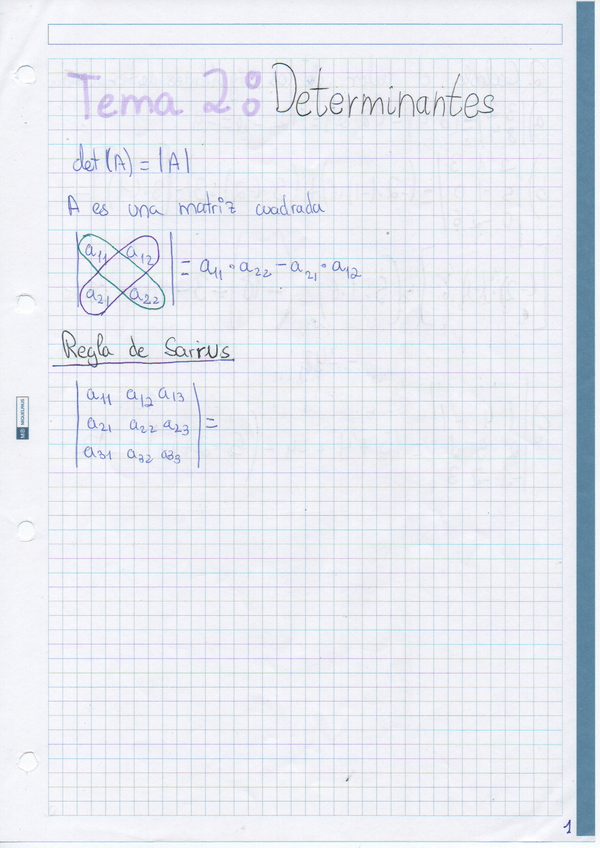 Tema 2: Determinantes
det(A) = |A|
A es una matriz cuadrada
| a₁₁ a₁₂ |
| a₂₁ a₂₂ | = a₁₁ · a₂₂ - a₂₁ · a₁₂
Regla de Sarrus
| a₁₁ a₁₂ a₁₃ |
| a₂₁ a₂₂ a₂₃ | =
| a₃₁ a₃₂ a₃₃ |
MIQUELRIUS
1